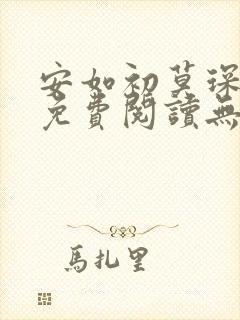 安如初莫琛
免費閱讀無
馬扎里